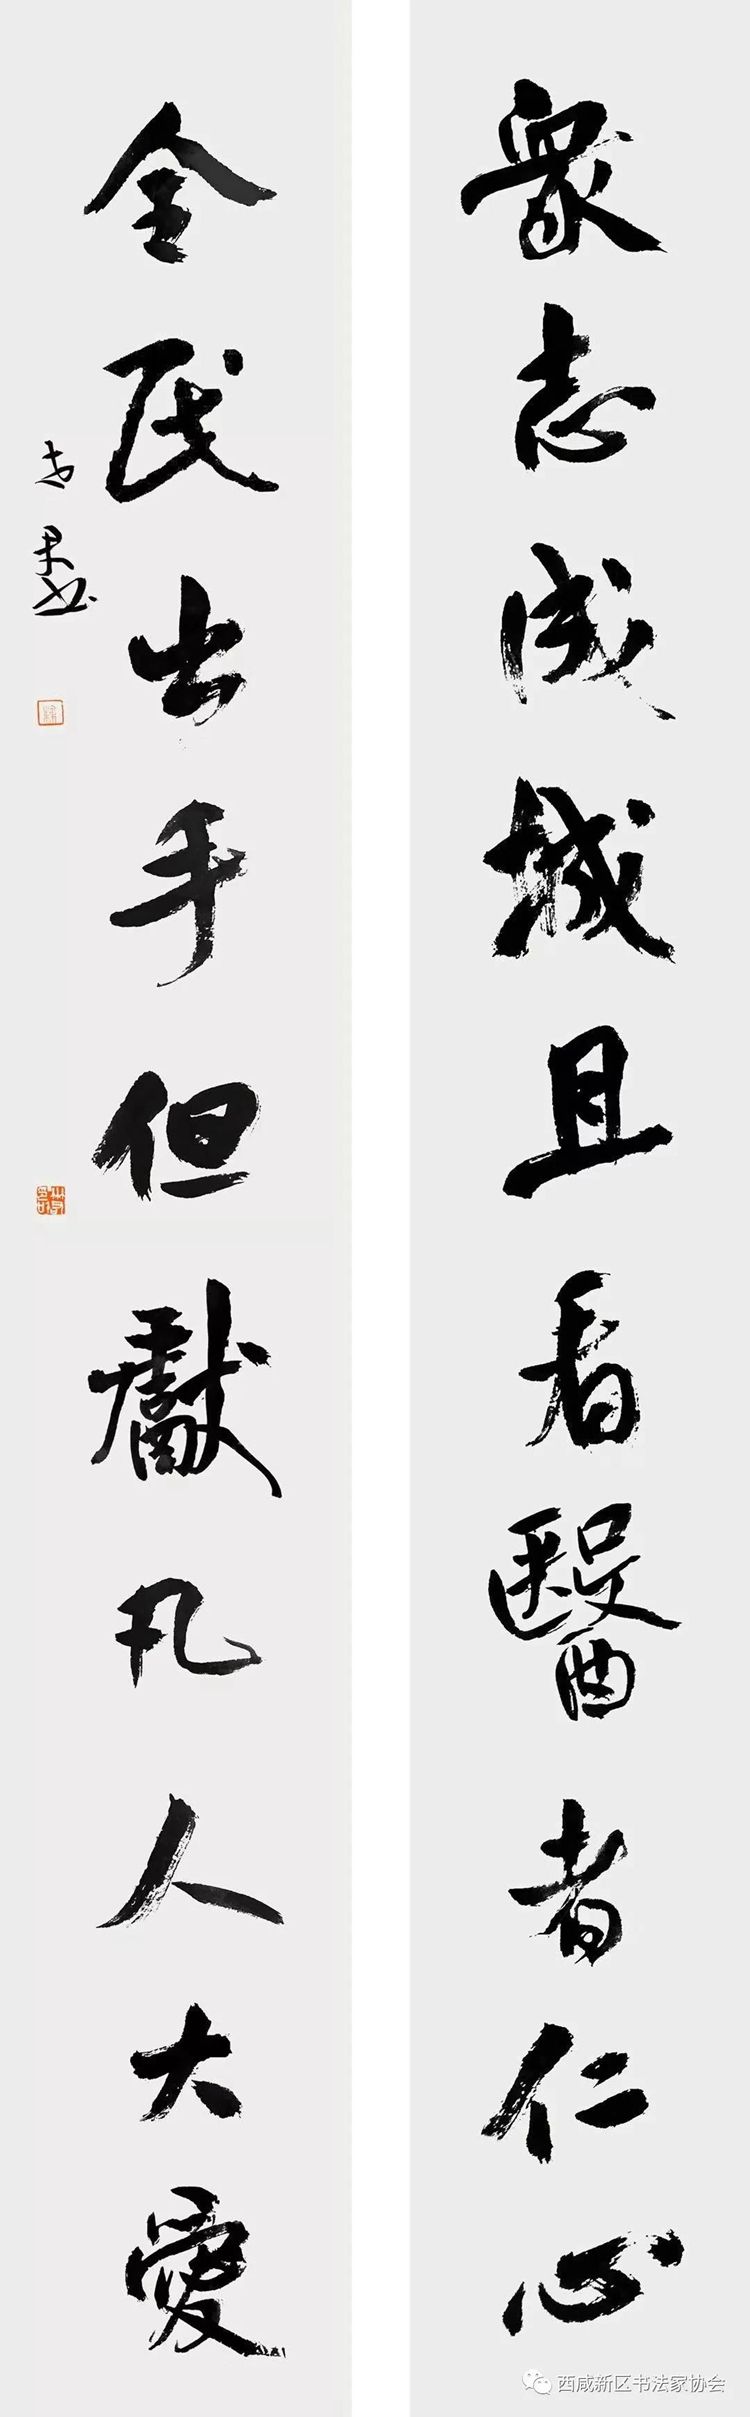 衆志成城且看醫者仁心
全民出手但獻凡人大愛
西咸新区书法家协会